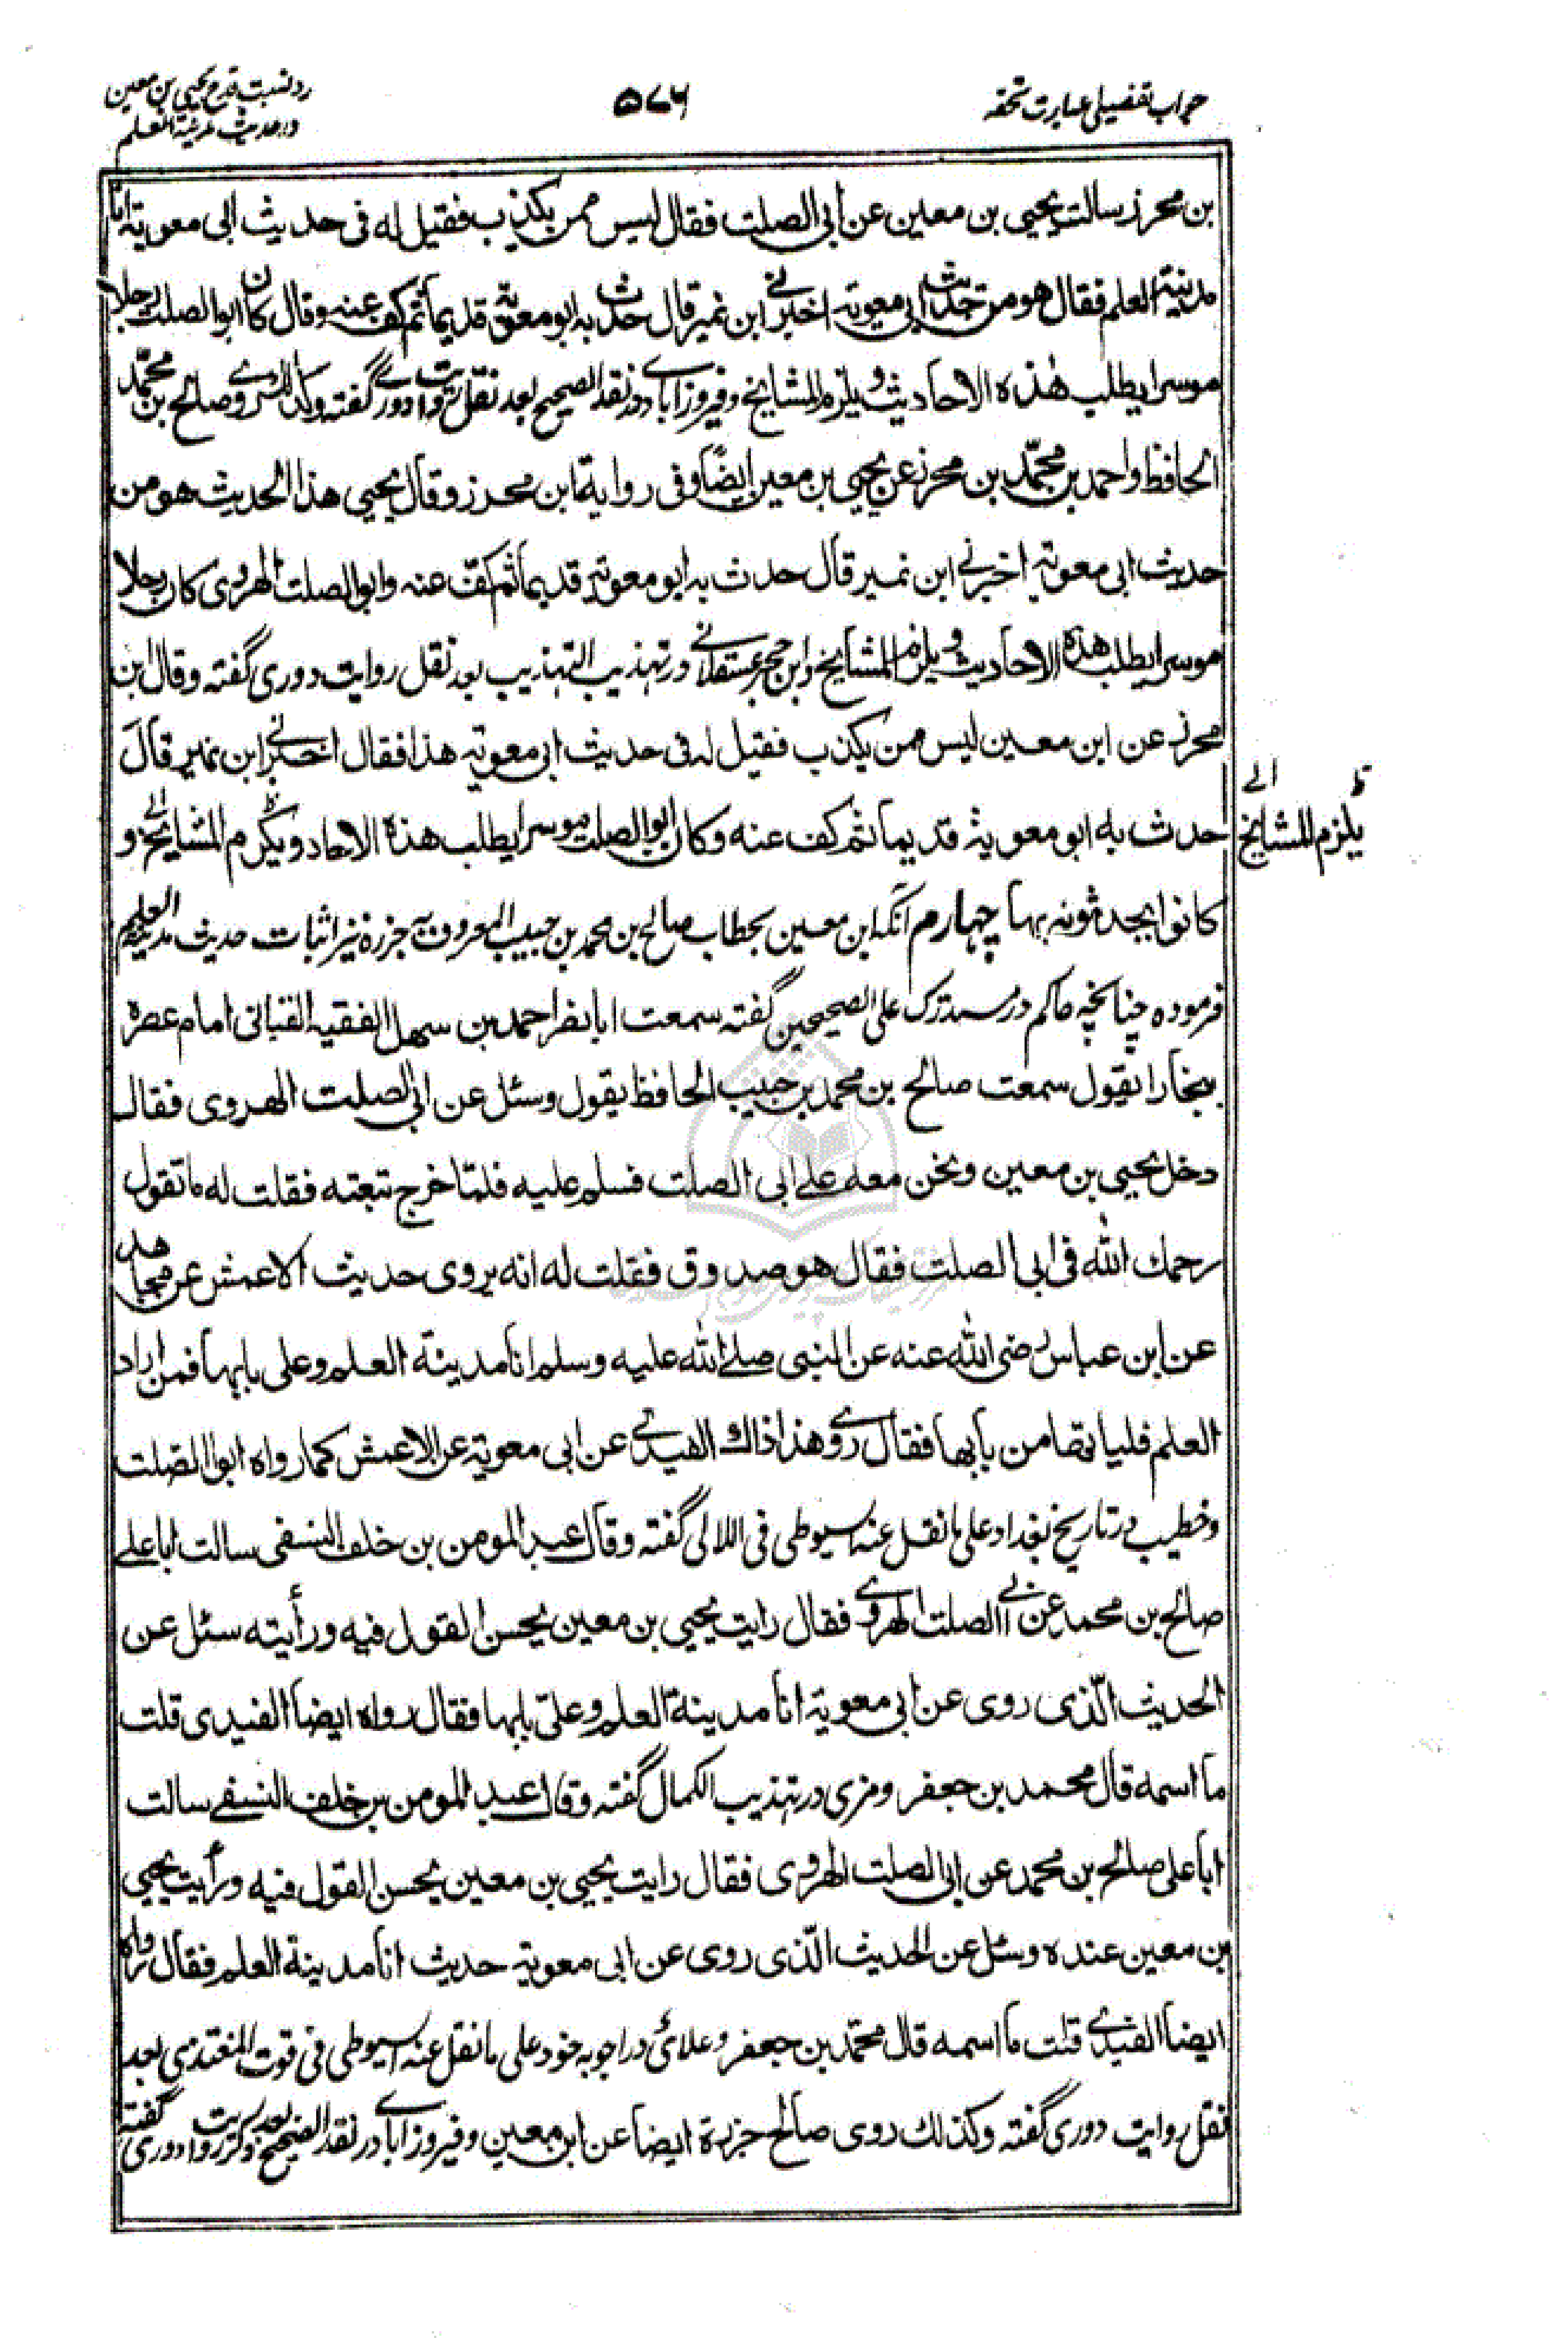 جواب تفصیلی عبارت تحفه
۵۷۶
رد نسبت قدح یحیی بن معین
در حدیث مدینة العلم
بن محرز سالت یحیی بن معین عن ابی الصلت فقال لیس ممن یکذب فقیل له فی حدیث ابی معویة انا
مدینة العلم فقال هو من حدیث ابی معویة اخبرنی ابن نمیر قال حدث به ابو معویة قدیما ثم کف عنه وقال کان ابو الصلت رجلا
موسرا یطلب هذه الاحادیث و یلزم المشایخ و فیروزآبادی در نقد الصحیح بعد نقل روایت دوری گفته و کذا روی صالح بن محمد
الحافظ و احمد بن محمد بن محرز عن یحیی بن معین ایضا و فی روایة ابن محرز و قال یحیی هذا الحدیث هو من
حدیث ابی معویة اخبرنی ابن نمیر قال حدث به ابو معویة قدیما ثم کفّ عنه و ابو الصلت الهروی کان رجلا
موسرا یطلب هذه الاحادیث و یلزم المشایخ و ابن حجر عسقلانی در تهذیب التهذیب بعد نقل روایت دوری گفته و قال ابن
محرز عن ابن معین لیس ممن یکذب فقیل له فی حدیث ابی معویة هذا فقال اخبرنی ابن نمیر قال
حدث به ابو معویة قدیما ثم کف عنه و کان ابو الصلت موسرا یطلب هذه الاحاد و یکرم المشایخ و
یلزم المشایخ
کانوا یحدثونه بها چهارم آنکه ابن معین بخطاب صالح بن محمد بن حبیب المعروف به جزره نیز اثبات حدیث مدینة العلم
فرموده چنانچه حاکم در مستدرک علی الصحیحین گفته سمعت ابا نصر احمد بن سهل الفقیه القبانی امام عصره
ببخارا یقول سمعت صالح بن محمد بن حبیب الحافظ یقول وسئل عن ابی الصلت الهروی فقال
دخل یحیی بن معین ونحن معه علی ابی الصلت فسلم علیه فلمّا خرج تبعته فقلت له ما تقول
رحمك الله فی ابی الصلت فقال هو صدوق فقلت له انه یروی حدیث الاعمش عن مجاهد
عن ابن عباس رضی الله عنه عن النبی صلی الله علیه وسلم انا مدینة العلم و علی بابها فمن اراد
العلم فلیاتها من بابها فقال روی هذا ذاك الفیدی عن ابی معویة عن الاعمش کما رواه ابو الصلت
و خطیب در تاریخ بغداد علی ما نقل عنه السیوطی فی اللالی گفته و قال عبد المومن بن خلف النسفی سالت ابا علی
صالح بن محمد عن ابی الصلت الهروی فقال رایت یحیی بن معین یحسن القول فیه ورأیته سئل عن
الحدیث الّذی روی عن ابی معویة انا مدینة العلم و علیّ بابها فقال رواه ایضا الفیدی قلت
ما اسمه قال محمد بن جعفر و مزی در تهذیب الکمال گفته و قال عبد المومن بن خلف النسفی سالت
ابا علی صالح بن محمد عن ابی الصلت الهروی فقال رایت یحیی بن معین یحسن القول فیه و رأیت یحیی
بن معین عنده وسئل عن الحدیث الّذی روی عن ابی معویة حدیث انا مدینة العلم فقال رواه
ایضا الفیدی قلت ما اسمه قال محمّد بن جعفر و علائی در اجوبه خود علی ما نقل عنه السیوطی فی قوت المغتذی بعد
نقل روایت دوری گفته و کذلك روی صالح جزرة ایضا عن ابن معین و فیروزآبادی در نقد الصحیح بعد ذکر روایت دوری گفته